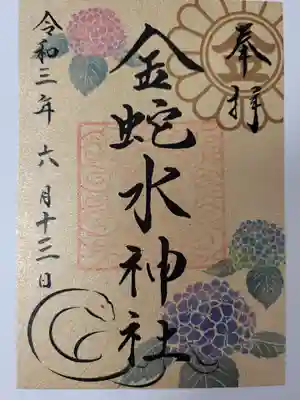 奉拝
金蛇水神社
令和三年六月十三日